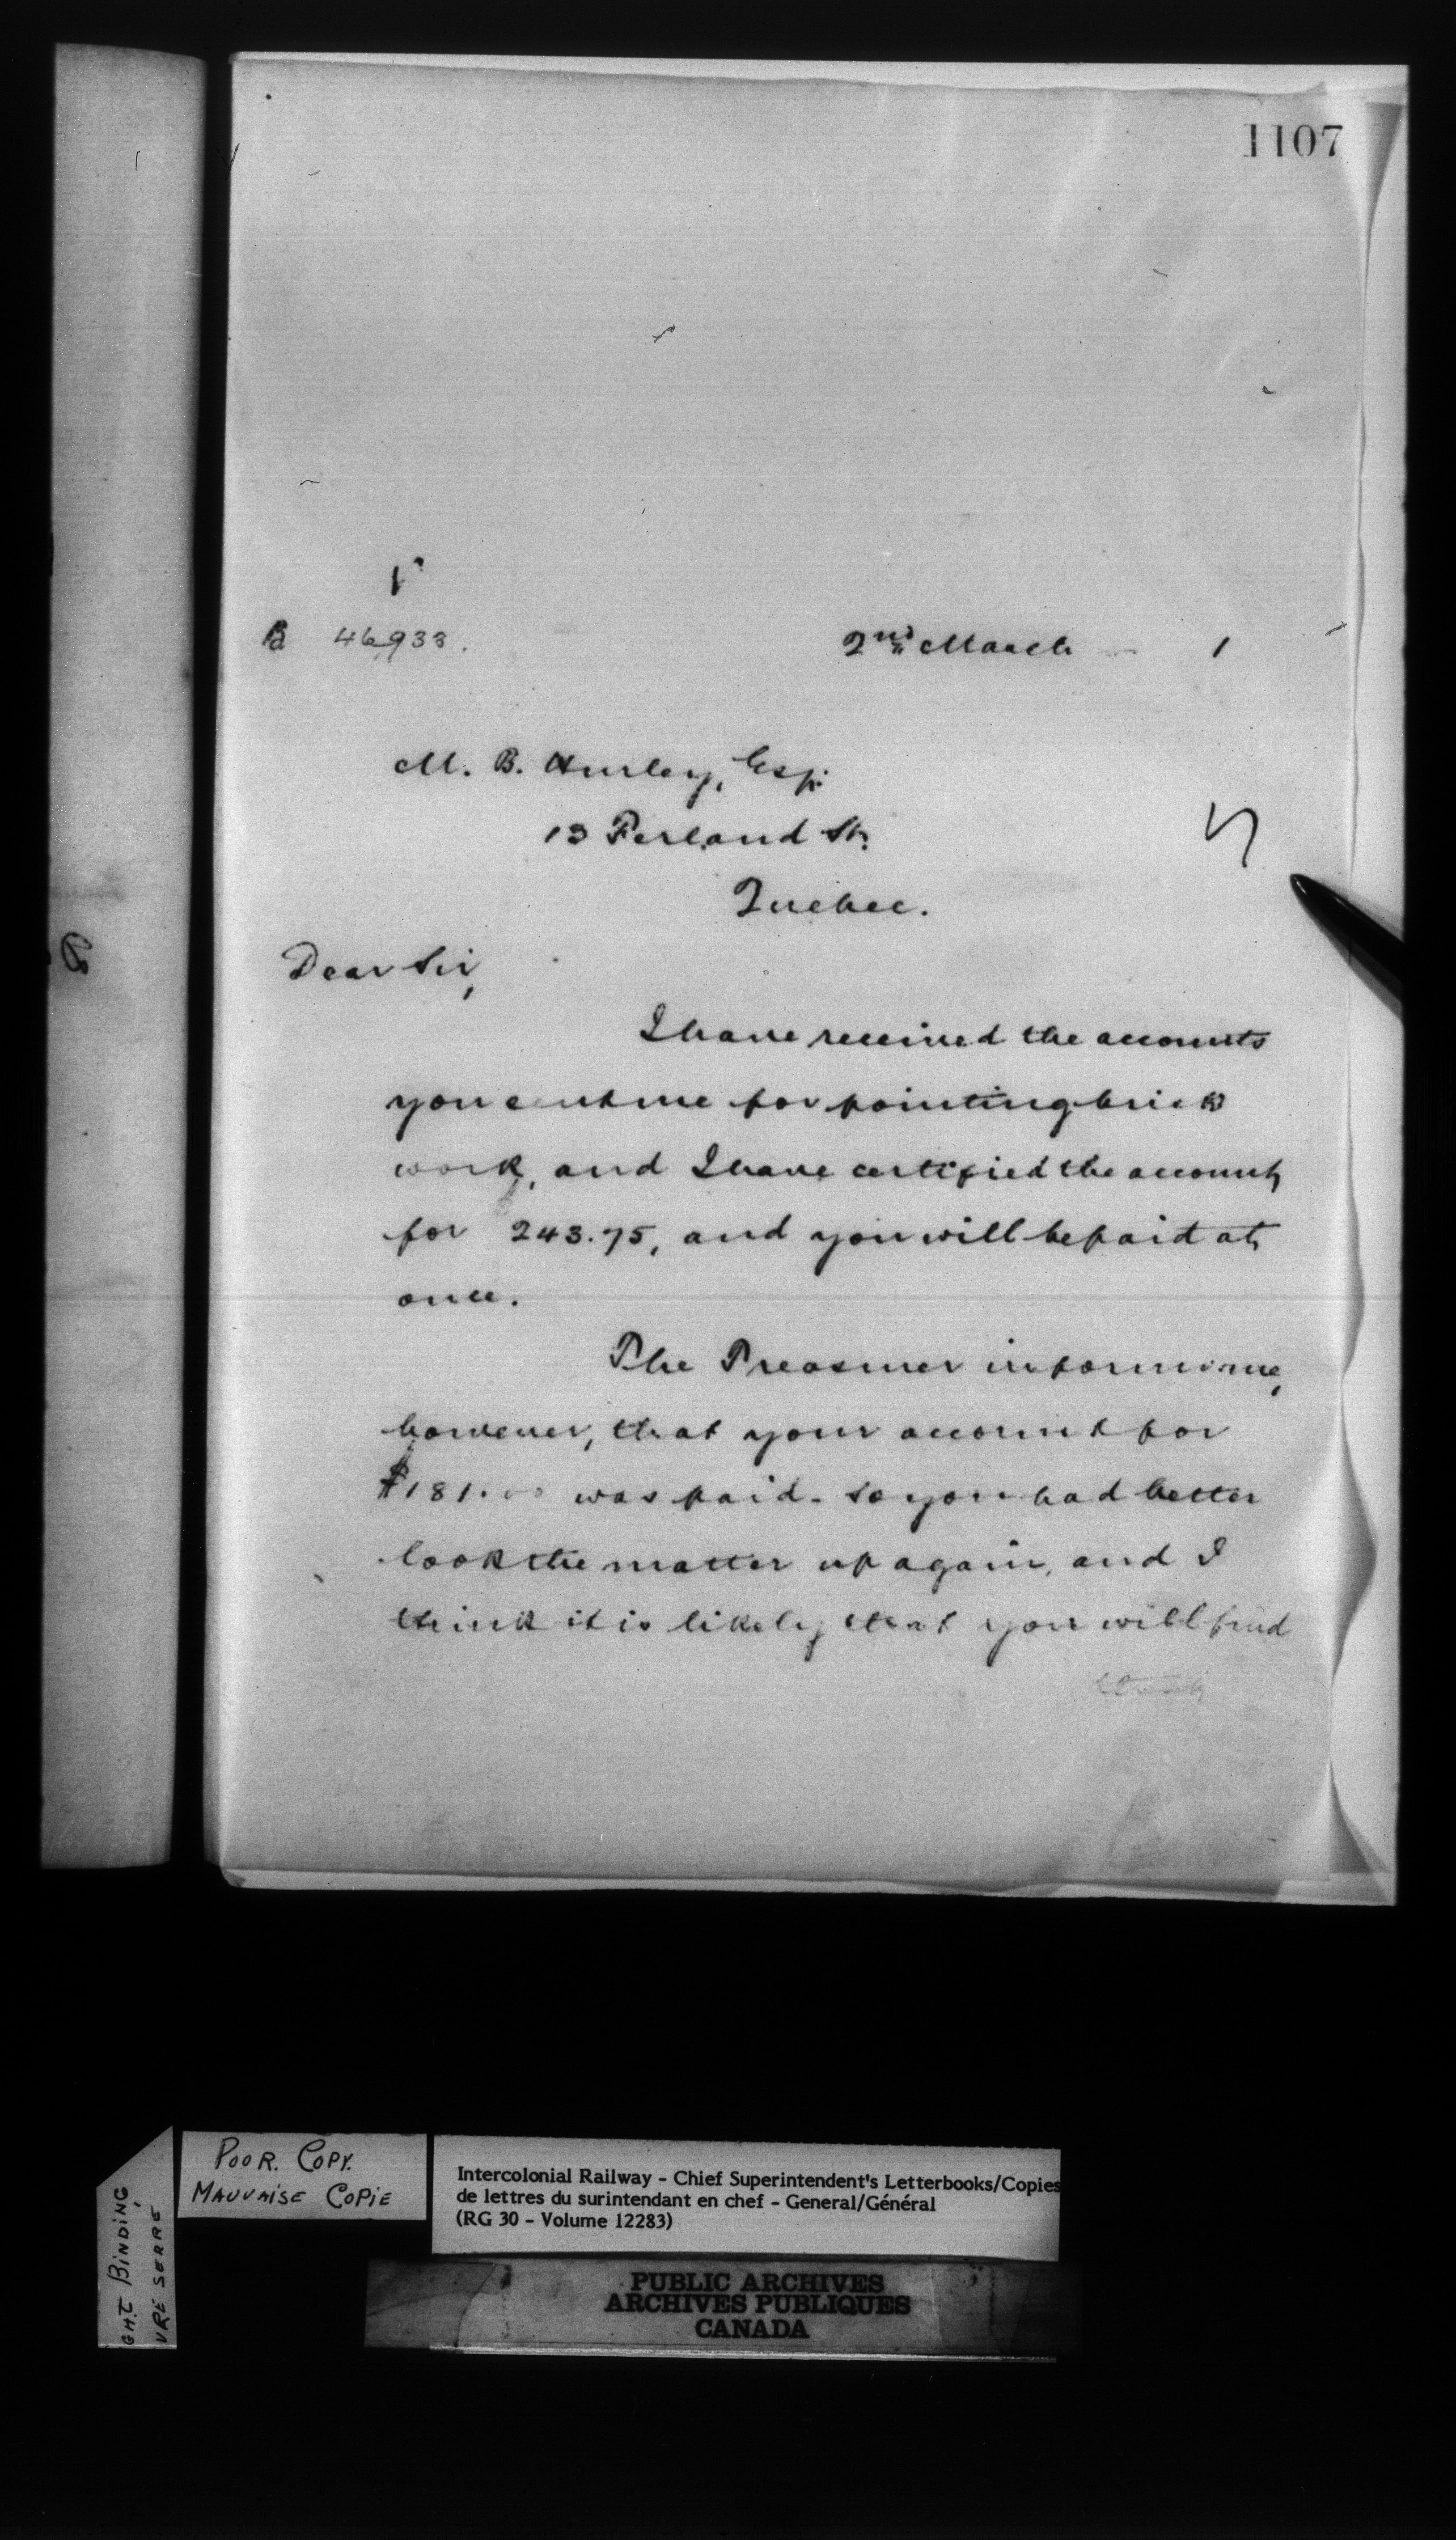 1107
B 46933.
2nd March 1
M. B. Hurley, Esq.
13 Ferland St.
Quebec.
Dear Sir,
I have received the accounts
you sent me for pointing brick
work, and I have certified the account
for 243.75, and you will be paid at
once.
The Treasurer informs me,
however, that your account for
$181.00 was paid. So you had better
look the matter up again, and I
think it is likely that you will find
POOR. COPY.
MAUVAISE COPIE
GHT BINDING
VRE SERRE
Intercolonial Railway - Chief Superintendent's Letterbooks/Copies
de lettres du surintendant en chef - General/Général
(RG 30 - Volume 12283)
PUBLIC ARCHIVES
ARCHIVES PUBLIQUES
CANADA